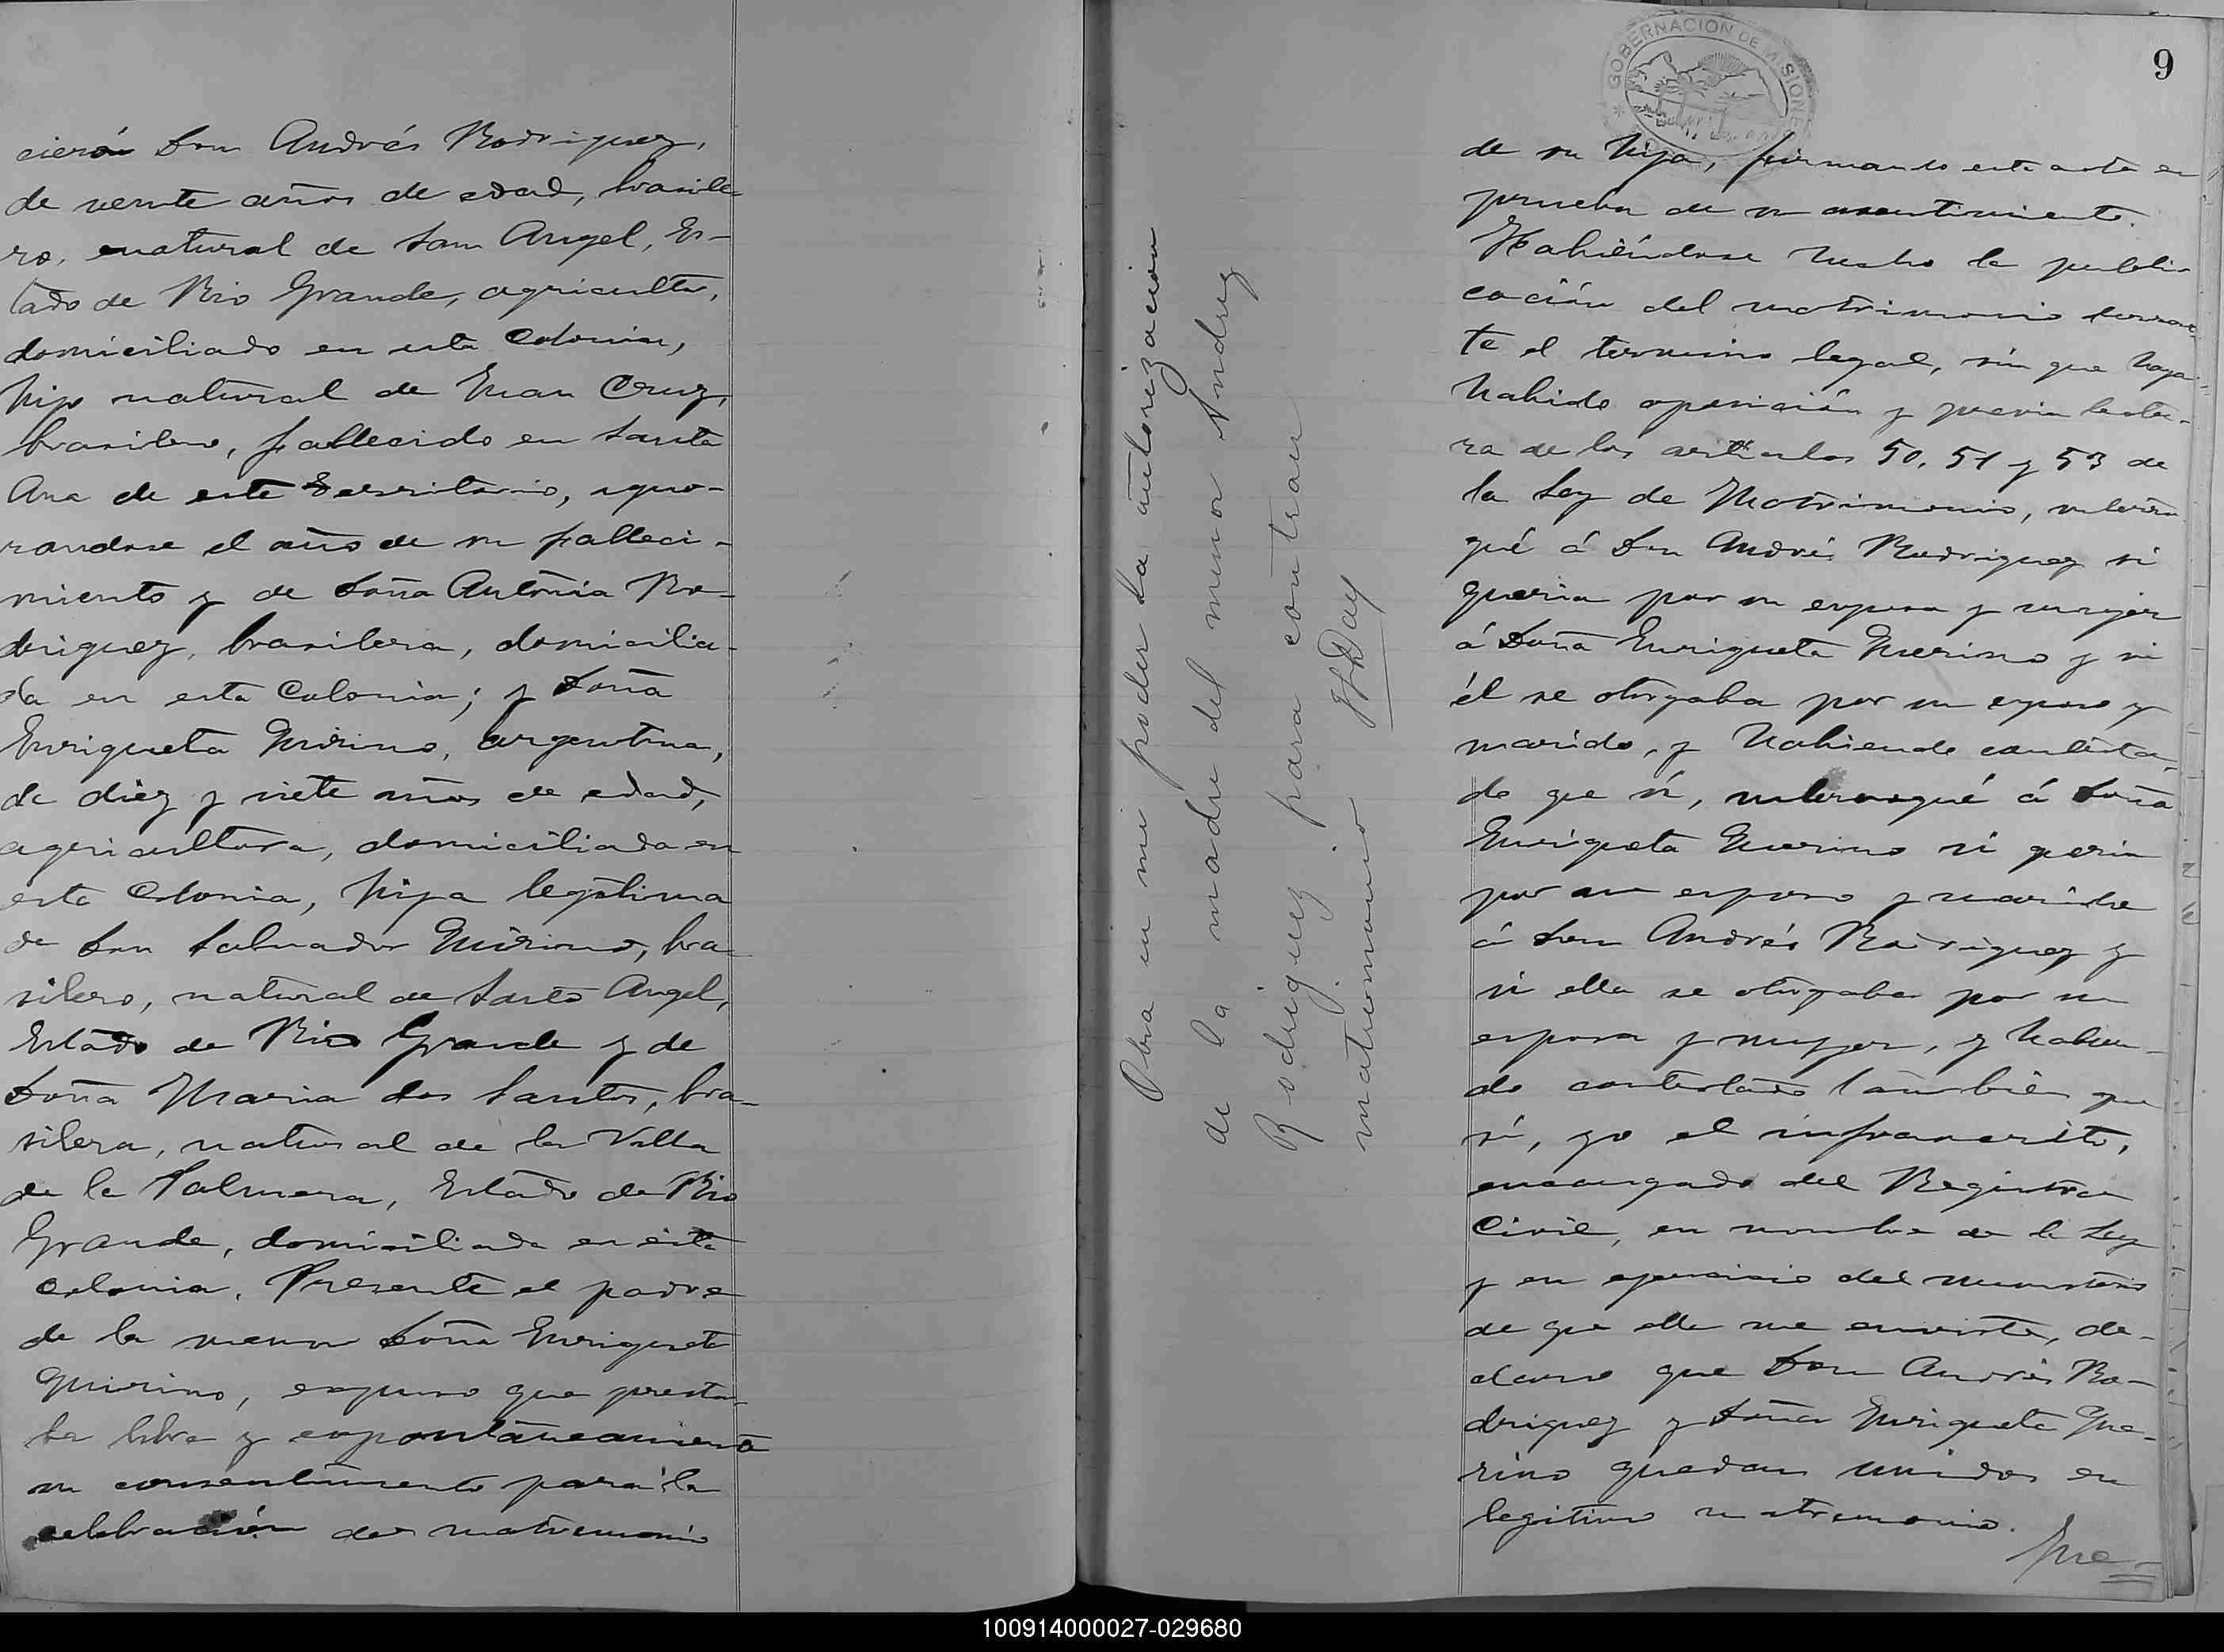 cierón Don Andrés Rodriguez,
de veinte años de edad, brasile-
ro, natural de San Angel, Es-
tado de Rio Grande, agricultor,
domiciliado en esta Colonia,
hijo natural de Juan Cruz,
brasilero, fallecido en Santa
Ana de este Territorio, igno-
randose el año de su falleci-
miento y de Doña Antonia Ro-
driguez, brasilera, domicilia-
da en esta Colonia; y Doña
Enriqueta Quirino, argentina,
de diez y siete años de edad,
agricultora, domiciliada en
esta Colonia, hija legitima
de Don Salvador Quirino, bra-
silero, natural de Santo Angel,
Estado de Rio Grande y de
Doña Maria dos Santos, bra-
silera, natural de la Villa
de la Palmera, Estado de Rio
Grande, domiciliada en ésta
colonia. Presente el padre
de la menor Doña Enriqueta
Quirino, expuso que presta-
ba libre y expontáneamente
su consentimiento para la
celebración del matrimonio
Obra en mi poder la autorización
de la madre del menor Andrez
Rodriguez para contraer
matrimonio
GOBERNACION DE MISIONES
9
de su hija, firmando esta acta en
prueba de su asentimiento.
Habiéndose hecho la publi-
cación del matrimonio duran-
te el termino legal, sin que haya
habido oposición y previa lectu-
ra de los articulos 50, 51 y 53 de
la Ley de Matrimonio, interro-
gué á Don Andrés Rodriguez si
queria por su esposa y mujer
á Doña Enriqueta Quirino y si
él se otorgaba por su esposo y
marido, y habiendo contesta-
do que sí, interrogué á Doña
Enriqueta Quirino si queria
por su esposo y marido
á Don Andrés Rodriguez y
si ella se otorgaba por su
esposa y mujer, y habien-
do contestado tambien que
sí, yo el infrascrito,
encargado del Registro
Civil, en nombre de la Ley
y en ejercicio del ministerio
de que ella me enviste, de-
claro que Don Andrés Ro-
driguez y Doña Enriqueta Qui-
rino quedan unidos en
legitimo matrimonio.
Fue-
100914000027-029680